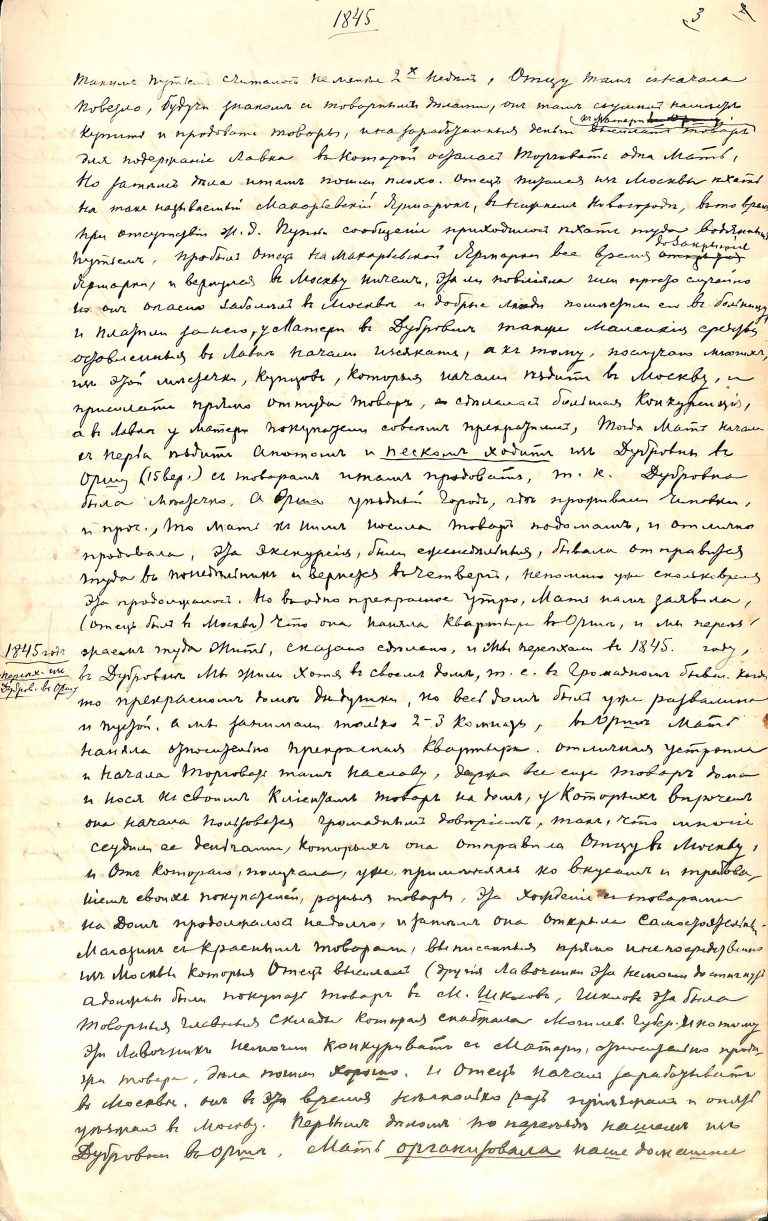 1845
3
такимъ путемъ считалось не менѣе 2х недѣль, Отцу тамъ сначала
повезло, будучи знакомъ съ товарнымъ дѣломъ, онъ тамъ
къ Матери
купить и продовать товары, и на заработанныя деньги высылать товаръ
для подержаніе Лавки въ Которой осталась Торговать одна Мать,
Но затѣмъ дѣла и тамъ пошли плохо. Отецъ изъ Москвы ехать
на такъ называемый Макарьевскій Ярмарокъ, въ Нижнемъ Новогородѣ, въ то время
при отсутствіи ж. д. Путей сообщеніе приходилось ехать туда водянымъ
до закрытіе
Путемъ, пробылъ Отецъ на Макарьевской Ярмарки все время
Ярмарки, и вернулся въ Москву ничемъ, Это ли повліяло или просто случайно
но онъ опасно заболѣлъ въ Москвѣ и добрые люди помѣстили его въ больницу
и платили за него, у Матери въ Дубровнѣ также Маленкія средства
оставленныя въ Лавкѣ начали изсякать, а къ тому, получаю многихъ,
изъ этой мѣстечки, Купцовъ, Которыя начали ездить въ Москву, и
присылать прямо оттуда товаръ, сдѣлалась большая Конкуренція,
а въ Лавкѣ у матери покупатели совсемъ прекратились, Тогда Мать начала
съ перва ездить а потомъ и пескомъ ходить изъ Дубровны въ
Оршу (15 вер.) съ товарамъ и тамъ продовать, т. к. Дубровна
была Мѣстечко, А Орша уѣздный Городъ, гдѣ проживали Чиновни,
и проч., то Мать къ нимъ носила товаръ по домамъ, и отлично
продовала, Эта экскурсія, были еженедѣльныя, бывала отправится
туда въ понедѣльникъ и вернется въ четвергъ, непомню уже сколько время
Это продолжалось. Но въ одно прекрасное утро, Мать намъ заявила,
(Отецъ былъ въ Москвѣ) Что она наняла Квартиру въ Оршѣ, и мы переѣз-
жаемъ туда Жить, сказано сдѣлано, и Мы переѣхали въ 1845. году,
1845 годъ
переѣх. изъ
Дубров. въ Оршу
въ Дубровнѣ Мы жили Хотя въ своемъ домѣ, т. е. въ Громадномъ бывш. Когда
то прекрасномъ домѣ Дѣдушки, но весь домъ былъ уже развалина
и пустой. а мы занимали только 2-3 Комнаты, въ Оршѣ Мать
наняла относительно прекрасная Квартира. отличная устроила
и Начала Торговать тамъ на славу, держа все еще товаръ дома
и нося къ своимъ Кліентамъ товаръ на домъ, у Которыхъ впрочемъ
она начала пользоватся громаднымъ довѣріемъ, такъ, что многіе
ссудили ее деньгами, Которыхъ она отправила Отцу въ Москву,
и Отъ Котораго, получала, уже, применяяся ко вкусамъ и требова-
ніемъ своихъ покупателей, разныя товары, Эта Хожденіе съ товарами
на Домъ продолжалось недолго, и затѣмъ она открыла Самостоятельн.
Магазинъ съ Краснымъ товарами, выписанныя прямо и непосредственно
изъ Москвы которыя Отецъ высылалъ (другія Лавочники Эта немогли достигнуть
а должны были покупать товаръ въ М. Шкловѣ, Шкловъ Эта была
товарныя главныя склады которая снабжала Могилев. Губер. И потому
Эти Лавочникъ немогли конкурировать съ Матери, относительно прода-
жи товара, дѣла пошли хорошо. И Отецъ началъ зарабатывать
въ Москвѣ. онъ въ эта время нѣсколько разъ пріезжалъ и опять
уѣзжалъ въ Москву. Первымъ дѣломъ по переѣздѣ нашемъ изъ
Дубровны въ Оршѣ, Мать организовала наше домашнее